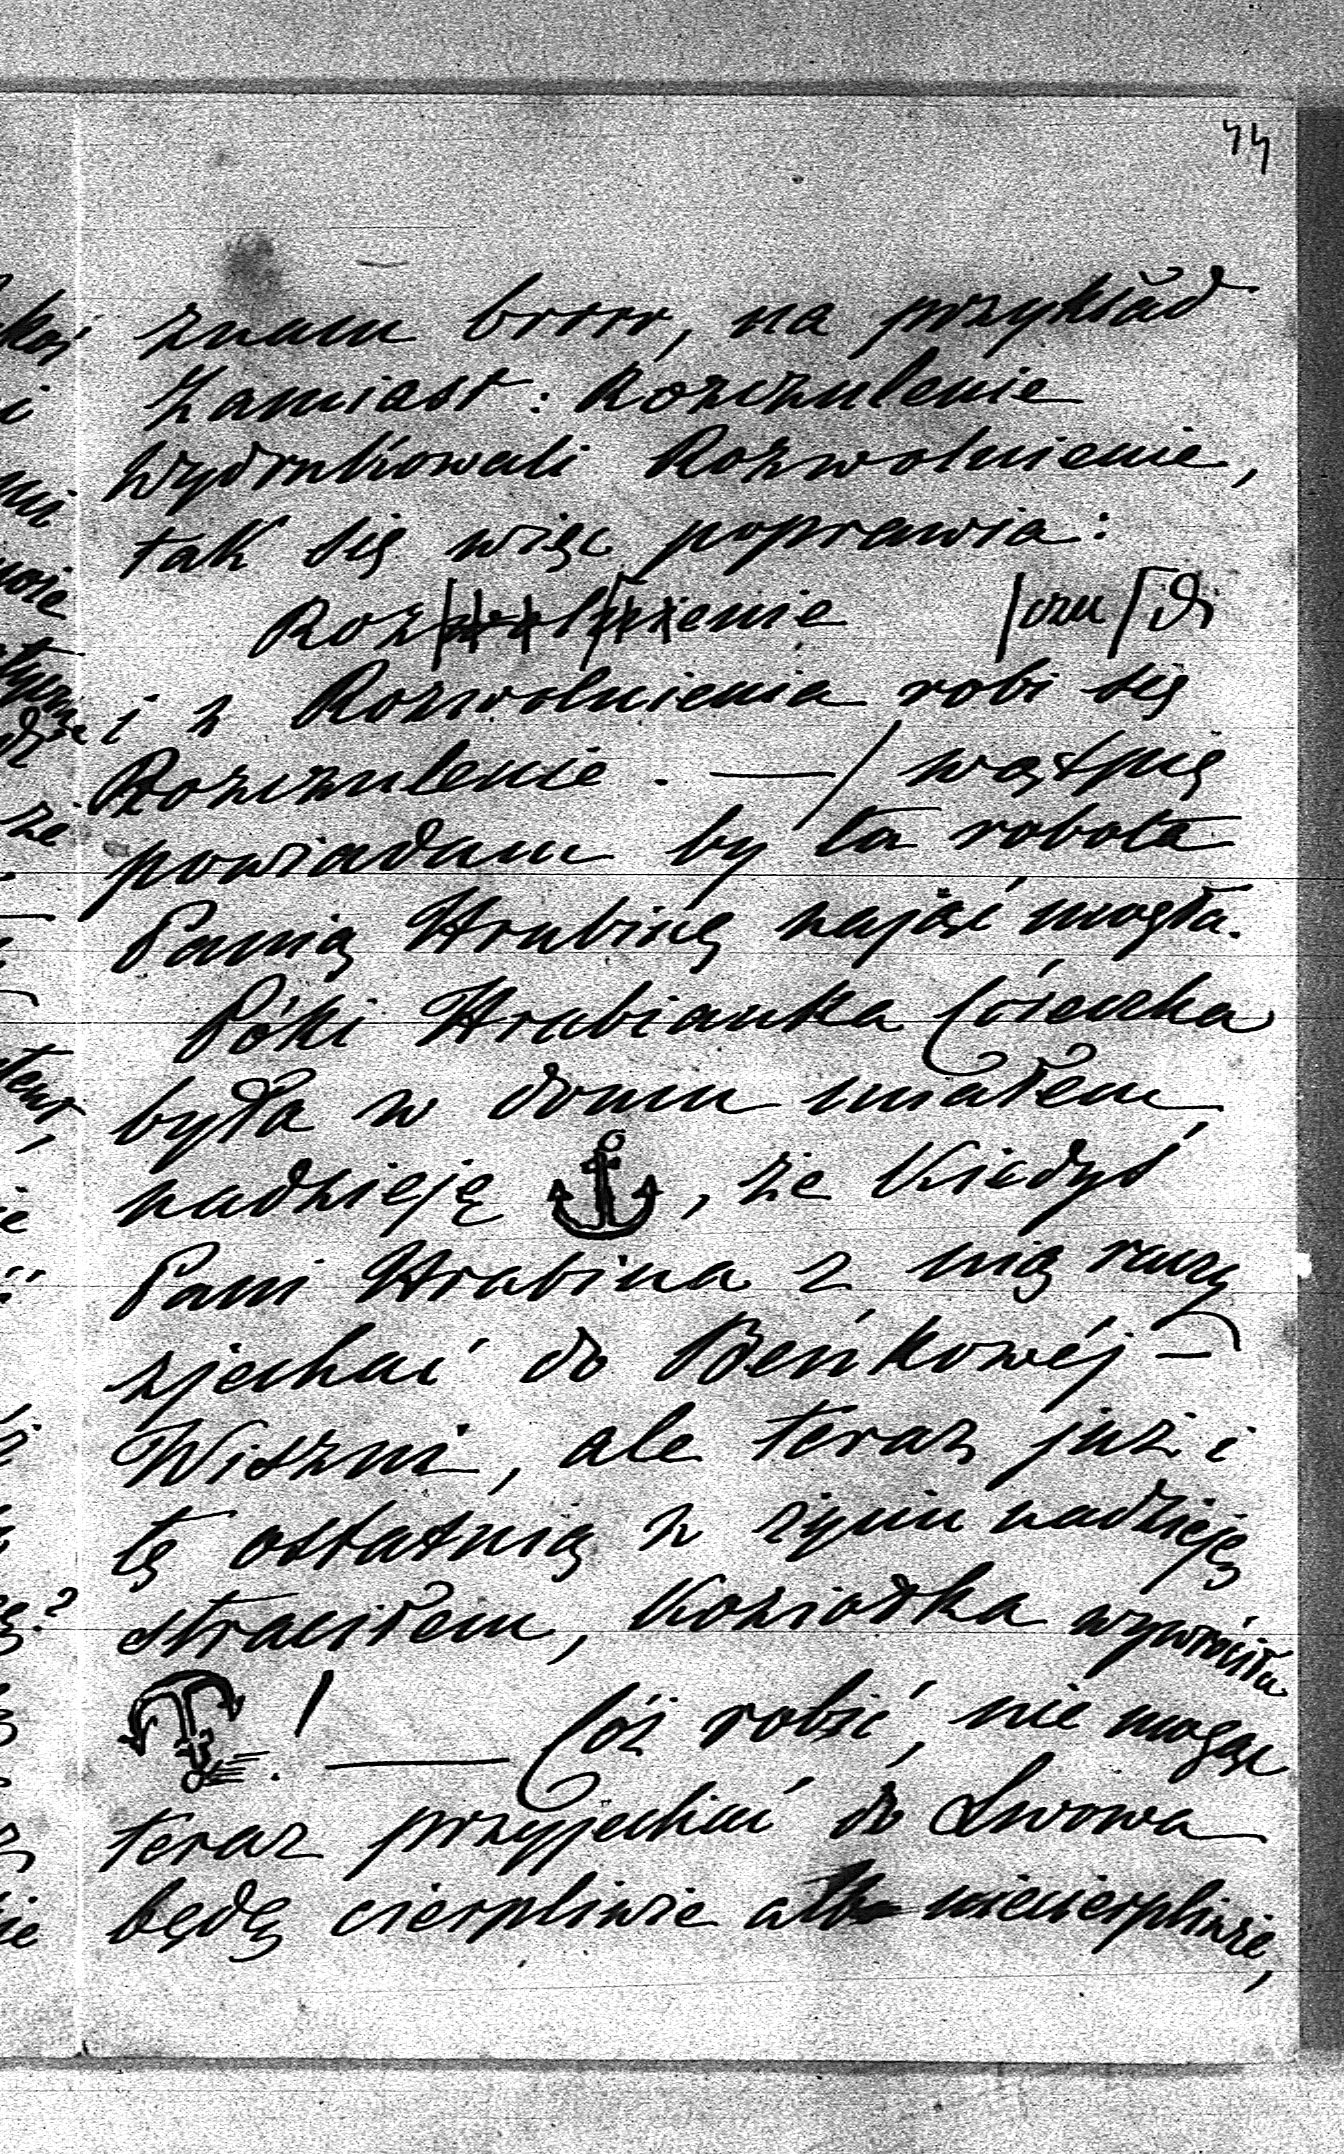 44
znam brrrr, na przykład
Zamiast: Rozczulenie
Wydrukowali Rozwolnienie,
tak się więc poprawia:
Rozwolnienie |czu
i z Rozwolnienia robi się
Rozczulenie. —/ wątpię
powiadam by ta robota
Panią Hrabinę zająć mogła.
Póki Hrabianka Córeczka
była w domu miałem
nadzieję , że kiedyś
Pani Hrabina z nią raczy
zjechać do Bieńkowéj –
Wiszni, ale teraz już i
tę ostatnią w życiu nadzieję
straciłem, Koziołka wywróciła
! — Cóż robić, nie mogąc
teraz przyjechać do Lwowa
będę cierpliwie albo niecierpliwie,